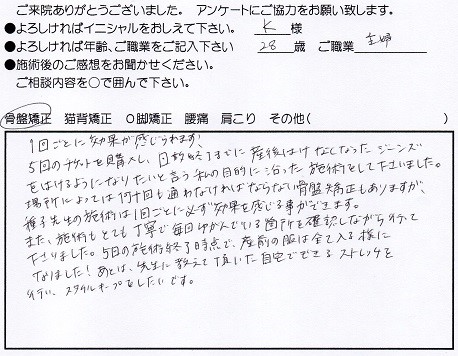 ご来院ありがとうございました。 アンケートにご協力をお願い致します。
●よろしければイニシャルをおしえて下さい。 K 様
●よろしければ年齢、ご職業をご記入下さい 28 歳 ご職業 主婦
●施術後のご感想をお聞かせください。
ご相談内容を○で囲んで下さい。
骨盤矯正 猫背矯正 O脚矯正 腰痛 肩こり その他( )
1回ごとに効果が感じられます、
5回のチケットを購入し、回数終了までに産後はけなくなったジーンズ
をはけるようになりたいと言う私の目的に沿った施術をして下さいました。
場所によっては何十回も通わなければならない骨盤矯正もありますが、
先生の施術は1回ごとに必ず効果を感じる事ができます。
また、施術もとても丁寧で毎回ゆがんでいる箇所を確認しながら行って
下さりました。5回の施術終了時点で、産前の服は全て入る様に
なりました!あとは、先生に教えて頂いた自宅でできるストレッチを
行い、スタイルキープをしたいです。